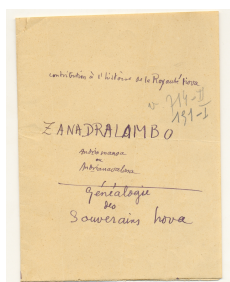 contribution à l'histoire de la Royauté Hova
n° 714-II
191-I
ZANADRALAMBO
ou
Généalogie
des
Souverains hova